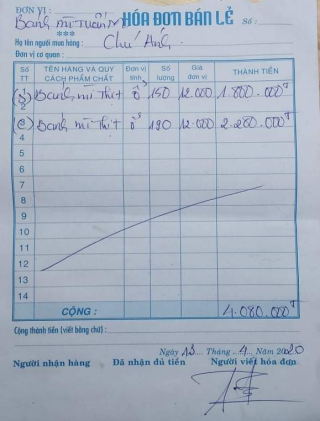 ĐƠN VỊ:
Bánh mì Tuấn
HÓA ĐƠN BÁN LẺ
***
Số:
Họ tên người mua hàng: Chú Anh
Đơn vị cơ quan:
Số TT TÊN HÀNG VÀ QUY CÁCH PHẨM CHẤT Đơn vị tính Số lượng Giá đơn vị THÀNH TIỀN
(1) Bánh mì thịt ổ 150 12.000 1.800.000đ
2
(2) Bánh mì thịt ổ 190 12.000 2.280.000đ
4
5
6
7
8
9
10
11
12
13
14
CỘNG: 4.080.000đ
Cộng thành tiền (viết bằng chữ):
Ngày 13 Tháng 4 Năm 2020
Người nhận hàng Đã nhận đủ tiền Người viết hóa đơn